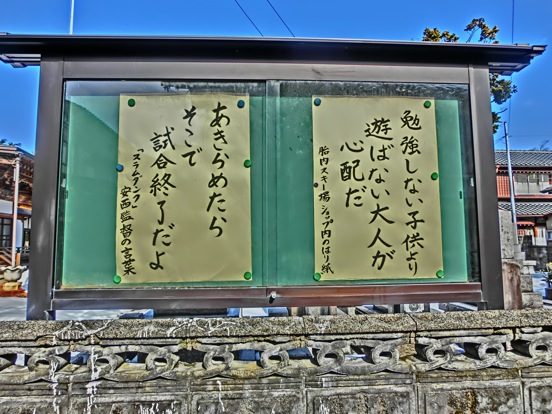 勉強しない子供より
遊ばない大人が
心配だ
胎内スキー場ショップ内のはり紙
あきらめたら
そこで
試合終了だよ
「スラムダンク」
安西監督の言葉